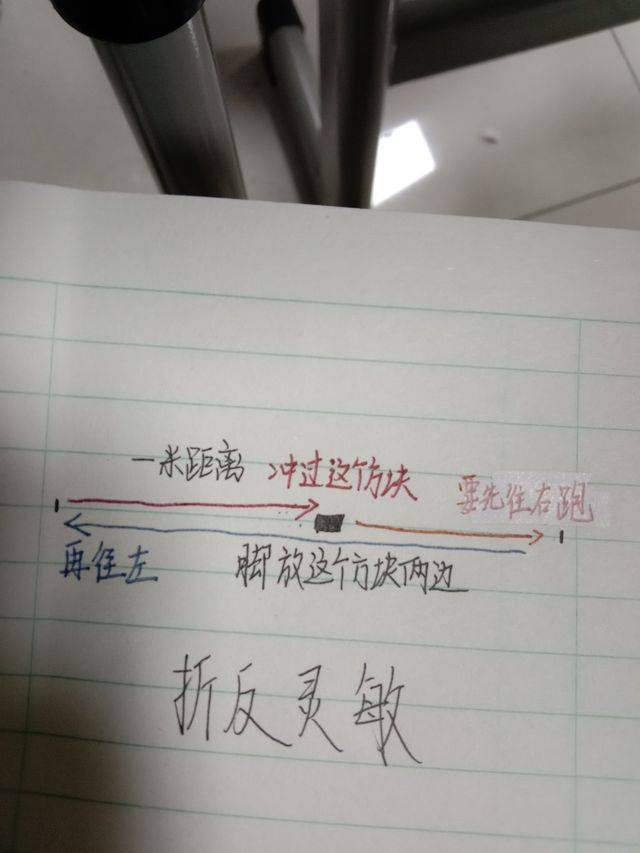 一米距离
冲过这个方块
要先往右跑
再往左
脚放这个方块两边
折反灵敏